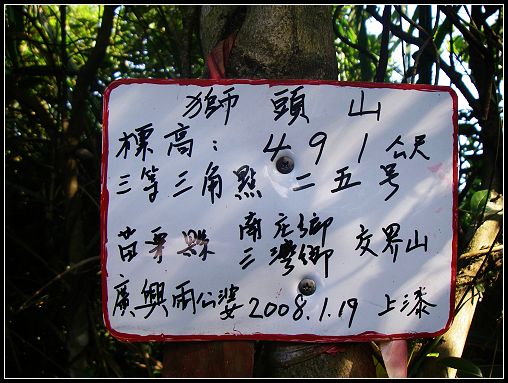 獅頭山
標高: 491公尺
三等三角點二五号
苗栗縣 南庄鄉
三灣鄉 交界山
廣興兩公婆 2008.1.19 上漆